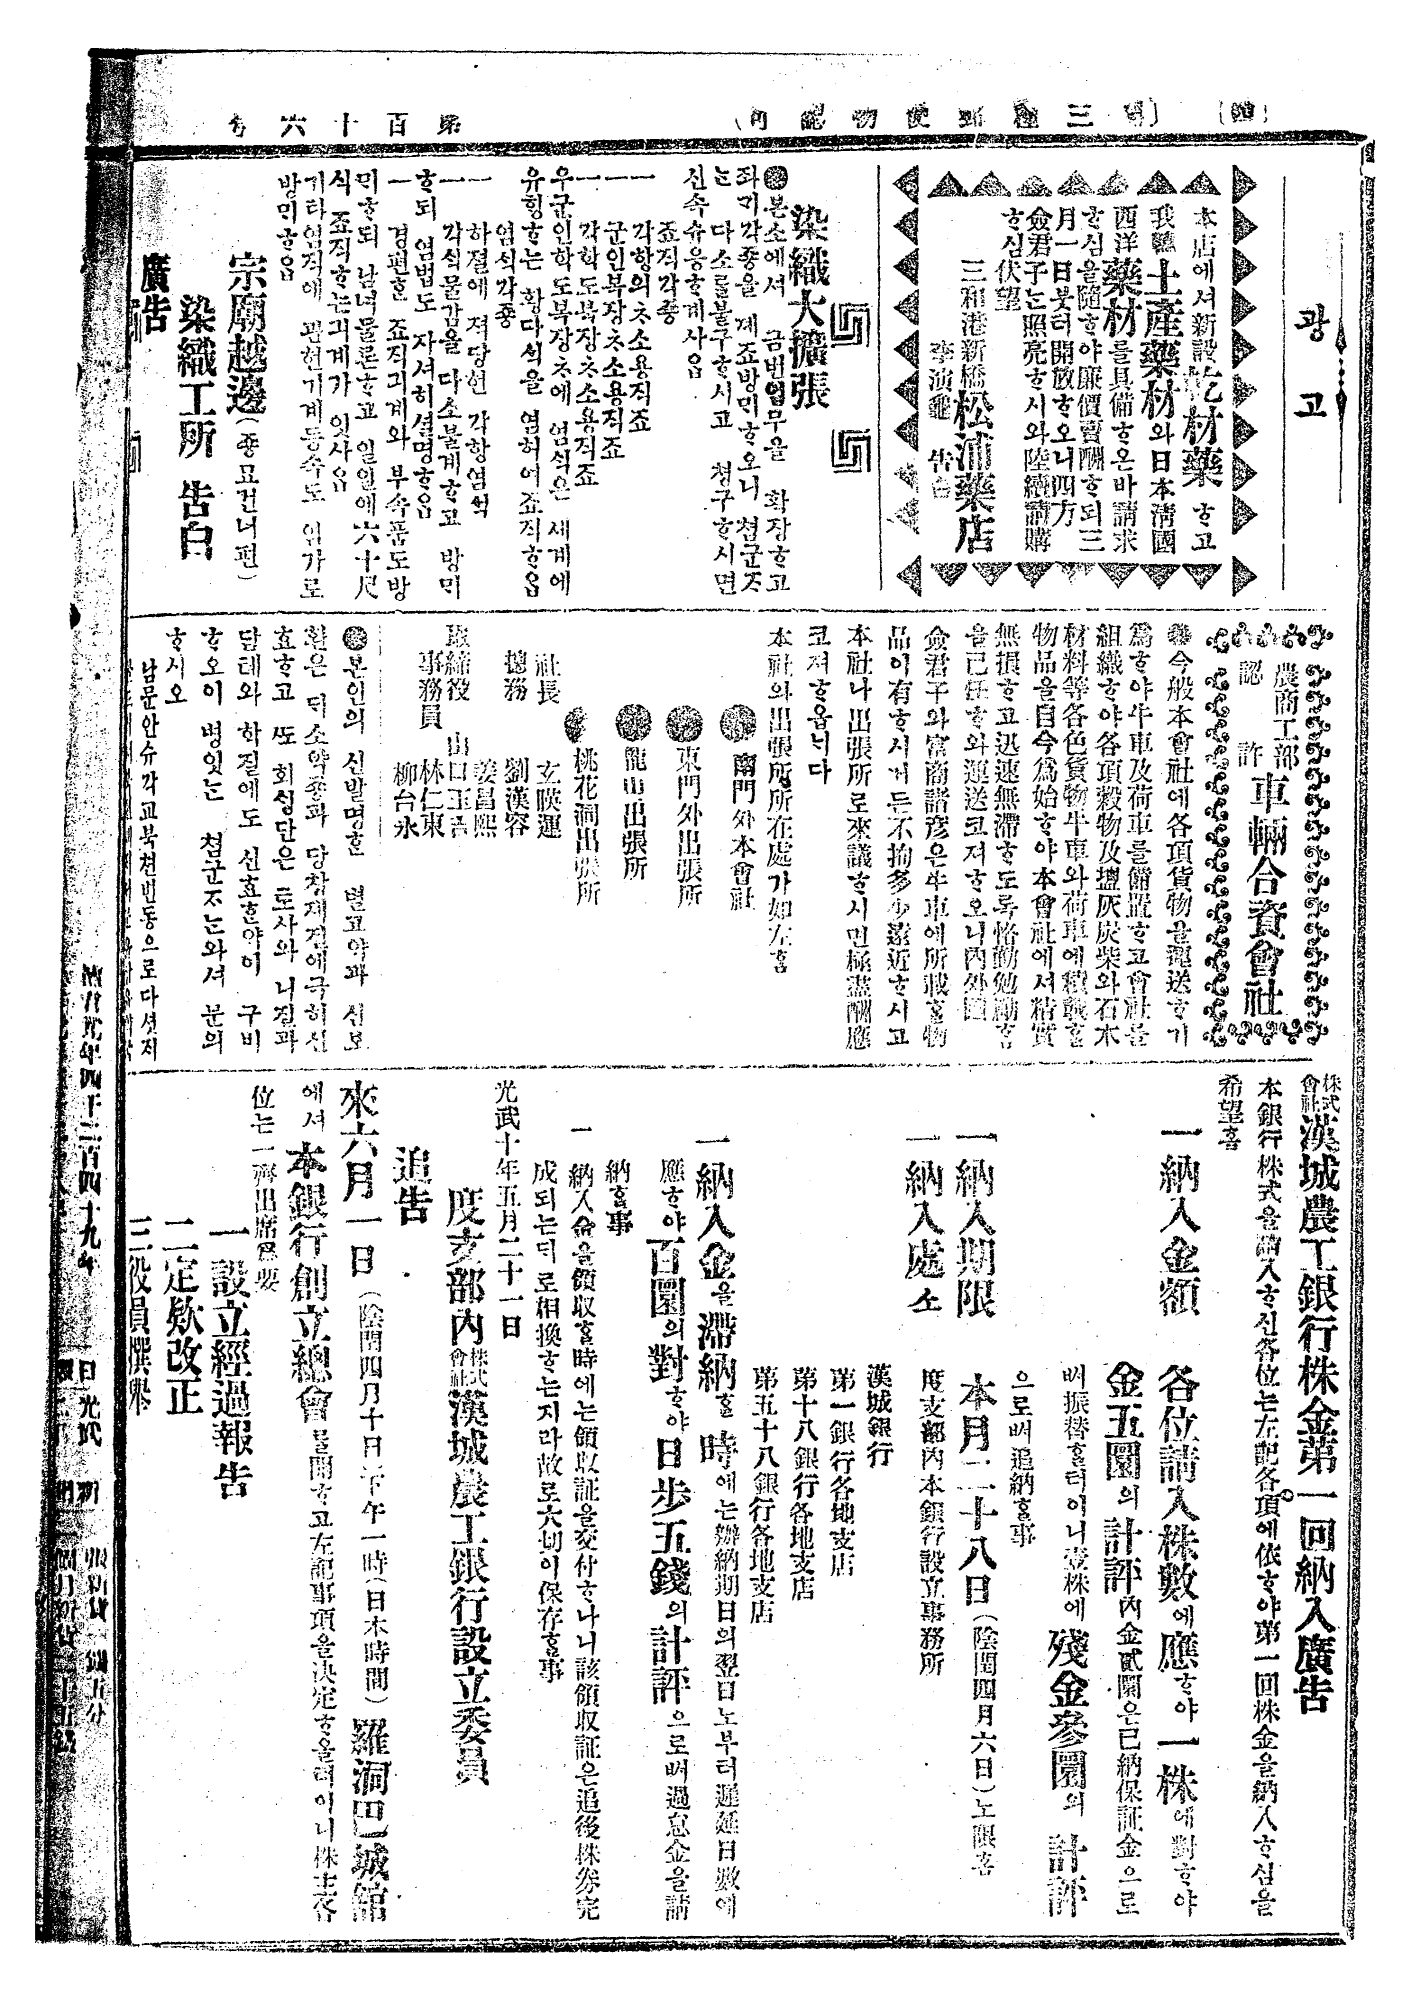 (四)
(第三種郵便物認可)
第百十六号
광고
本店에셔新設乾材藥ᄒᆞ고
我韓土産藥材와日本淸國
西洋藥材를具備ᄒᆞ온바請求
ᄒᆞ심을隨ᄒᆞ야廉價賣酬ᄒᆞ되三
月一日붓터開放ᄒᆞ오니四方
僉君子ᄂᆞᆫ照亮ᄒᆞ시와陸續請購
ᄒᆞ심伏望
三和港新橋松浦藥店
李演龜 告白
染織大擴張
본소에셔 금번업무을 확장ᄒᆞ고
좌긔각죵을 졔죠방ᄆᆡᄒᆞ오니 쳠군ᄌᆞ
ᄂᆞᆫ 다소를불구ᄒᆞ시고 쳥구ᄒᆞ시면
신속슈응ᄒᆞ게사옵
죠직각죵
一 각항의ᄎᆞ소용직죠
一 군인복장ᄎᆞ소용직죠
一 각학도복장ᄎᆞ소용직죠
우군인학도복장ᄎᆞ에 염ᄉᆡᆨ은 세계에
유ᄒᆡᆼᄒᆞᄂᆞᆫ 황다ᄉᆡᆨ을 염ᄒᆞ여죠직ᄒᆞ옵
염ᄉᆡᆨ각죵
一 하졀에 젹당헌 각항염ᄉᆡᆨ
一 각ᄉᆡᆨ물감을 다소불계ᄒᆞ고 방ᄆᆡ
ᄒᆞ되 염법도 자셔히셜명ᄒᆞ옵
一 경편ᄒᆞᆫ 죠직긔계와 부속품도방
ᄆᆡᄒᆞ되 남녀물론ᄒᆞ고 일일에六十尺
식 죠직ᄒᆞᄂᆞᆫ긔계가 잇사옵
기타염직에 관헌긔계등속도 염가로
방ᄆᆡᄒᆞ옵
宗廟越邊(종묘건너편)
染織工所 告白
廣告
農商工部
認許
車輛合資會社
今般本會社에各項貨物을運送ᄒᆞ기
爲ᄒᆞ야牛車及荷車를備置ᄒᆞ고會社를
組織ᄒᆞ야各項穀物及塩灰炭柴와石木
材料等各色貨物牛車와荷車에積載ᄒᆞᆯ
物品을自今爲始ᄒᆞ야本會社에셔精實
無損ᄒᆞ고迅速無滯ᄒᆞ도록恪勤勉勵ᄒᆞᆷ
을已任ᄒᆞ와運送코져ᄒᆞ오니內外國
僉君子와富商諸彦은牛車에所載ᄒᆞᆯ物
品이有ᄒᆞ시거든不拘多少遠近ᄒᆞ시고
本社나出張所로來議ᄒᆞ시면極盡酬應
코져ᄒᆞ옵ᄂᆡ다
本社와出張所所在處가如左ᄒᆞᆷ
南門外本會社
東門外出張所
龍山出張所
桃花洞出張所
社長 玄暎運
摠務 劉漢容
姜昌熙
取締役 山口玉吉
事務員 林仁東
柳台永
본인의 신발명ᄒᆞᆫ 별고약과 신보
환은 ᄃᆡ소약죵과 당창ᄌᆡ졈에극히신
효ᄒᆞ고 ᄯᅩ 회ᄉᆡᆼ단은 토사와 니질과
담톄와 학질에도 신효ᄒᆞᆫ약이 구비
ᄒᆞ오이 병잇ᄂᆞᆫ 쳠군ᄌᆞᄂᆞᆫ와셔 문의
ᄒᆞ시오
남문안슈각교북쳔변동으로다섯ᄌᆡ
株式會社漢城農工銀行株金第一回納入廣告
本銀行株式을請入ᄒᆞ신各位ᄂᆞᆫ左記各項에依ᄒᆞ야第一回株金을納入ᄒᆞ심을
希望ᄒᆞᆷ
一納入金額 各位請入株數에應ᄒᆞ야一株에對ᄒᆞ야
金五圜의計評內金貳圜은已納保証金으로
ᄡᅥ振替ᄒᆞᆯ터이니壹株에 殘金參圜의計評
으로ᄡᅥ追納ᄒᆞᆯ事
一納入期限 本月二十八日(陰閏四月六日)노限ᄒᆞᆷ
一納入處소 度支部內本銀行設立事務所
漢城銀行
第一銀行各地支店
第十八銀行各地支店
第五十八銀行各地支店
一納入金을滯納ᄒᆞᆯ時에ᄂᆞᆫ辦納期日의翌日노부터遲延日數에
應ᄒᆞ야百圜의對ᄒᆞ야日步五錢의計評으로ᄡᅥ過怠金을請
納ᄒᆞᆯ事
一 納入金을領収ᄒᆞᆯ時에ᄂᆞᆫ領収証을交付ᄒᆞ나니該領収証은追後株券完
成되ᄂᆞᆫᄃᆡ로相換ᄒᆞᄂᆞᆫ지라故로大切이保存ᄒᆞᆯ事
光武十年五月二十一日
度支部內株式會社漢城農工銀行設立委員
追告
來六月一日(陰閏四月十日)下午一時(日本時間)羅洞巴城館
에셔本銀行創立總會를開ᄒᆞ고左記事項을決定ᄒᆞ올터이니株主各
位ᄂᆞᆫ一齊出席爲要
一設立經過報告
二定欵改正
三役員撰擧